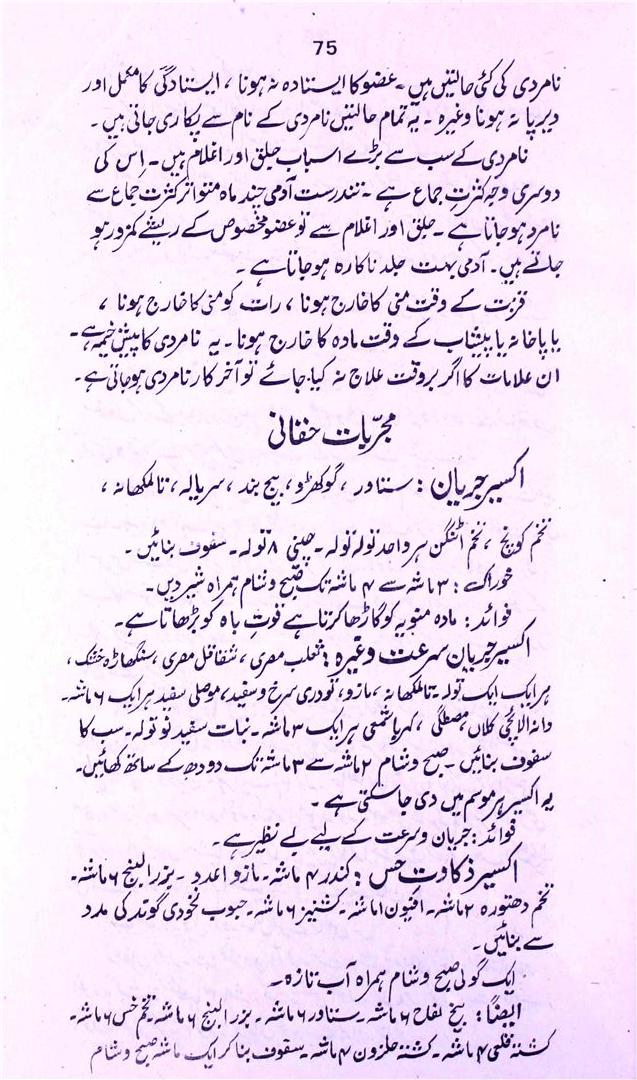 75
نامردی کی کئی حالتیں ہیں۔ عضو کا ایستادہ نہ ہونا ، ایستادگی کا مکمل اور
دیرپا نہ ہونا وغیرہ ۔ یہ تمام حالتیں نامردی کے نام سے پکاری جاتی ہیں ۔
نامردی کے سب سے بڑے اسباب جلق اور اغلام ہیں ۔ اِس کی
دوسری وجہ کثرتِ جماع ہے ۔ تندرست آدمی چند ماہ متواتر کثرتِ جماع سے
نامرد ہو جاتا ہے ۔ جلق اور اغلام سے تو عضو مخصوص کے ریشے کمزور ہو
جاتے ہیں ۔ آدمی بہت جلد ناکارہ ہو جاتا ہے ۔
قربت کے وقت منی کا خارج ہونا ، رات کو منی کا خارج ہونا ،
یا پاخانہ یا پیشاب کے وقت مادہ کا خارج ہونا ۔ یہ نامردی کا پیش خیمہ ہے ۔
ان علامات کا اگر بروقت علاج نہ کیا جائے تو آخر کار نامردی ہو جاتی ہے ۔
مجرّبات حقانی
اکسیر جریان : ستاور ، گوکھڑو ، بیج بند ، سریالہ ، تالمکھانہ ،
تخم کونچ ، تخم اٹنگن ہر واحد تولہ تولہ ۔ چینی ۸ تولہ ۔ سفوف بنائیں ۔
خوراک : ۳ ماشہ سے ۴ ماشہ تک صبح و شام ہمراہ شیر دیں ۔
فوائد : مادہ منویہ کو گاڑھا کرتا ہے قوتِ باہ کو بڑھاتا ہے ۔
اکسیر جریان سرعت وغیرہ : ثعلب مصری ، شقاقل مصری ، سنگھاڑہ خشک ،
ہر ایک ایک تولہ ۔ تالمکھانہ ، مازو ، تودری سرخ و سفید ، موصلی سفید ہر ایک ۶ ماشہ ۔
دانہ الائچی کلاں ، مصطگی ، کہربا شمعی ہر ایک ۳ ماشہ ۔ نبات سفید نو تولہ ۔ سب کا
سفوف بنائیں ۔ صبح و شام ۲ ماشہ سے ۳ ماشہ تک دودھ کے ساتھ کھائیں ۔
یہ اکسیر ہر موسم میں دی جا سکتی ہے ۔
فوائد : جریان و سرعت کے لیے بے نظیر ہے ۔
اکسیر ذکاوت حس : کندر ۴ ماشہ ۔ مازو ۱ عدد ۔ بزر البنج ۶ ماشہ ۔
تخم دھتورہ ۲ ماشہ ۔ افیون ۱ ماشہ ۔ کشنیز ۶ ماشہ ۔ حبوب نخودی گوند کی مدد
سے بنائیں ۔
ایک گولی صبح و شام ہمراہ آب تازہ ۔
ایضاً : بیخ لفاح ۶ ماشہ ۔ ستاور ۶ ماشہ ۔ بزر البنج ۶ ماشہ ۔ تخم خس ۶ ماشہ ۔
کشتہ قلعی ۴ ماشہ ۔ کشتہ حلزون ۴ ماشہ ۔ سفوف بنا کر ایک ماشہ صبح و شام